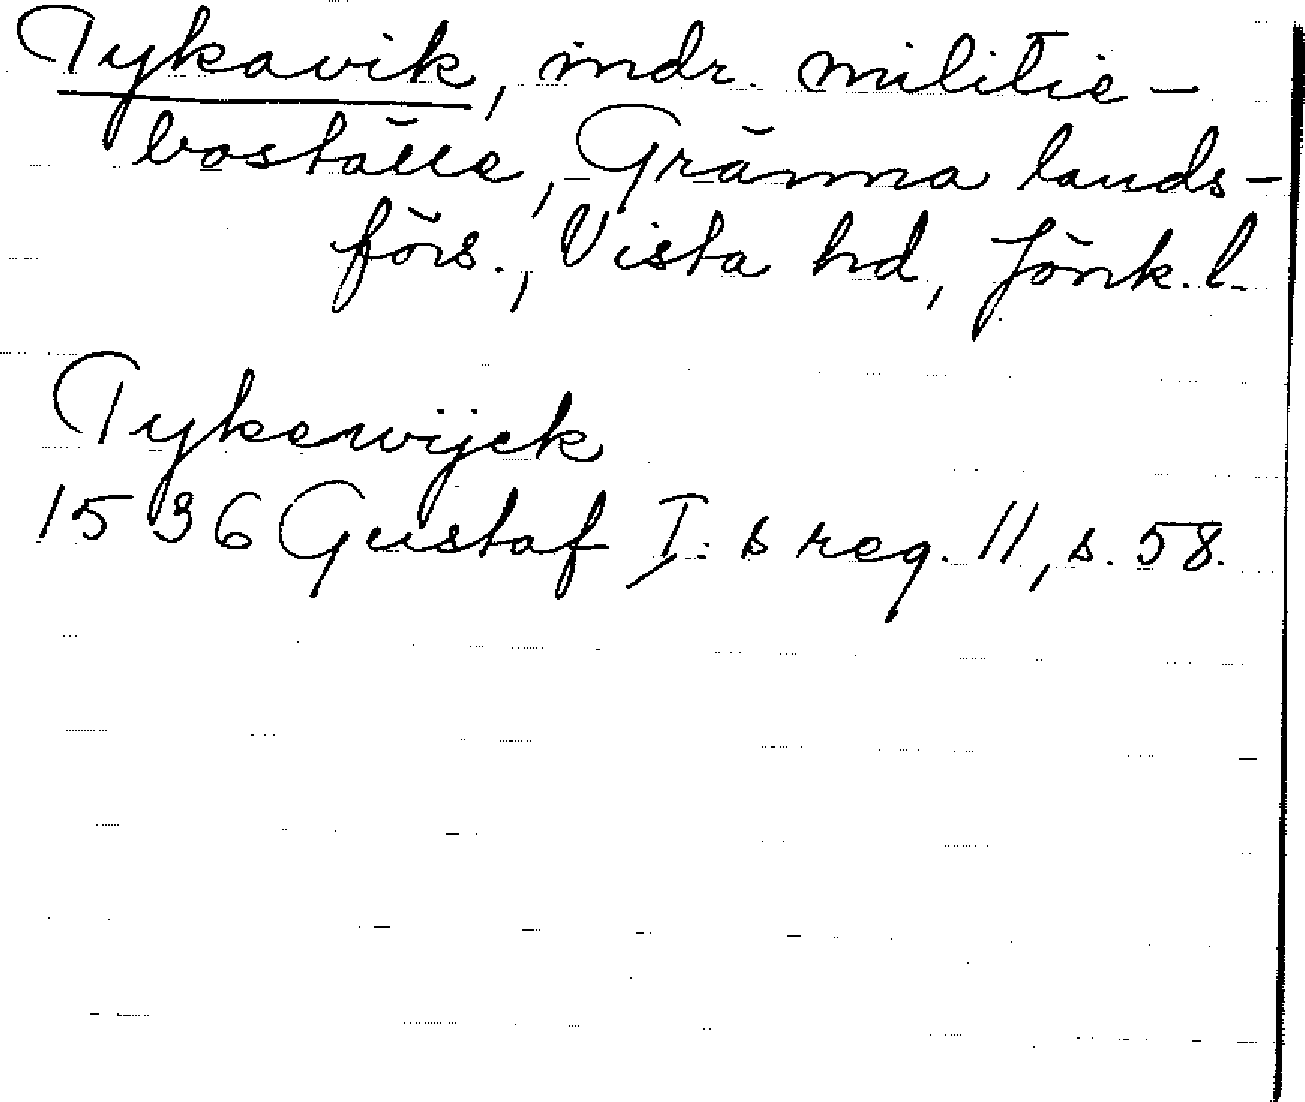 Tykavik, indr. militie-
boställe, Gränna lands-
förs., Vista hd, Jönk.l.
Tykewijck
1536 Gustaf I:s reg. 11, s. 58.